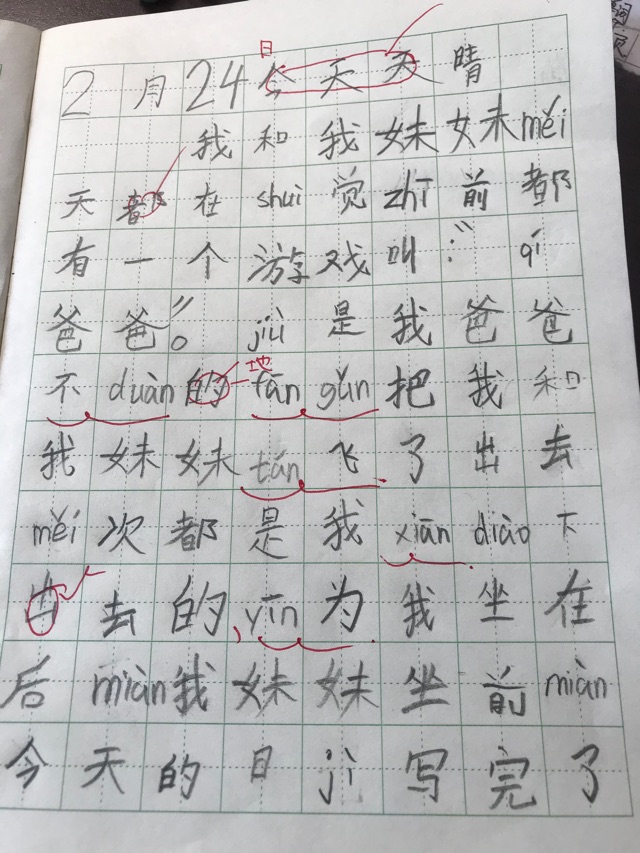 日
2月24今天天晴
我和我妹妹měi
天都在shuì觉zhī前都
有一个游戏叫:“qí
爸爸”。jiù是我爸爸
地
不duàn的fān gǔn把我和
我妹妹tán飞了出去
měi次都是我xiān diào下
去的,yīn为我坐在
后miàn我妹妹坐前miàn
今天的日jì写完了